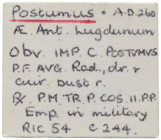 Postumus · A.D. 260
Æ Ant. Lugdunum
Obv. IMP. C. POSTVMVS
P.F. AVG. Rad., dr. &
cuir. bust r.
Rx. P.M. TR. P. COS. II. P.P.
Emp. in military
RIC 54 C 244.